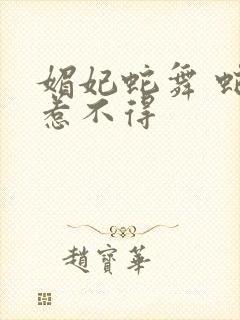 媚妃蛇舞 蛇
惹不得
趙寶華